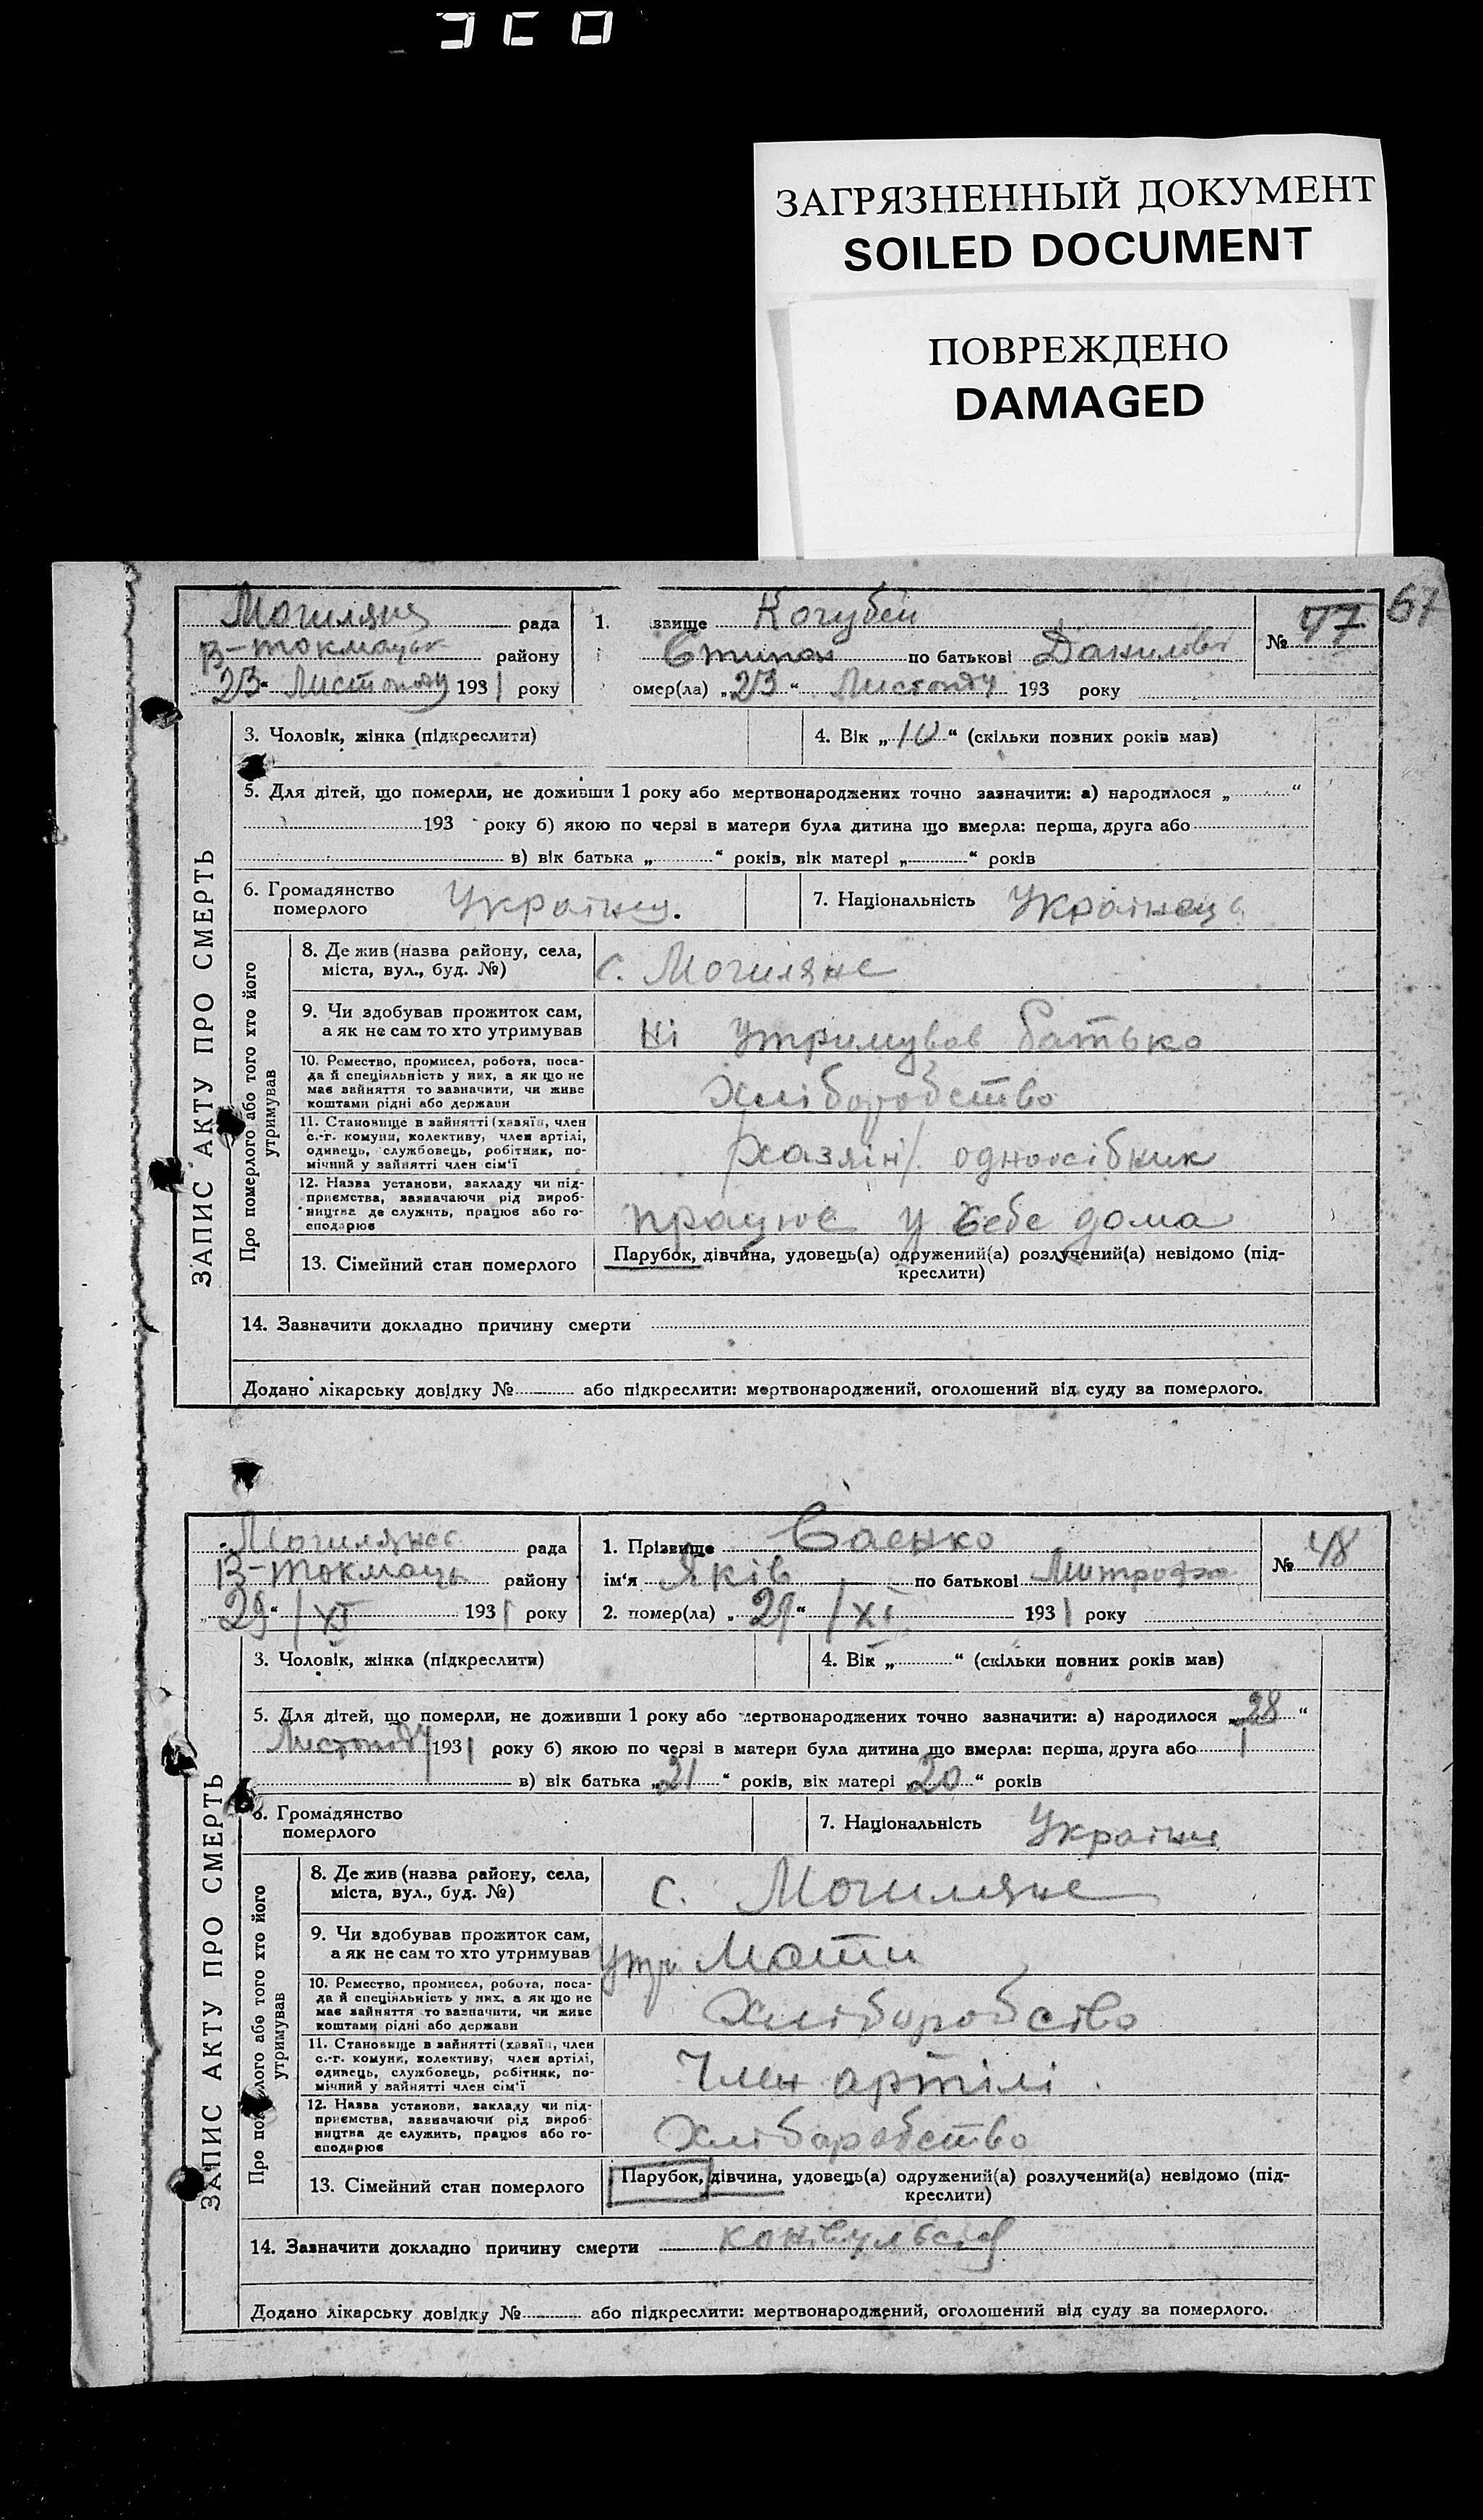 ЗАГРЯЗНЕННЫЙ ДОКУМЕНТ
SOILED DOCUMENT
ПОВРЕЖДЕНО
DAMAGED
67
ЗАПИС АКТУ ПРО СМЕРТЬ
рада
В-Токмацьк району
"23" Листопаду 1931 року
1. звище Кочубей
Степан по батькові Данилов
омер(ла) „23“ Листопаду 193 року
№ 47
3. Чоловік, жінка (підкреслити)
4. Вік „10“ (скільки повних років мав)
5. Для дітей, що померли, не доживши 1 року або мертвонароджених точно зазначити: а) народилося „ “
193 року б) якою по черзі в матери була дитина що вмерла: перша, друга або
в) вік батька „ “ років, вік матері „ “ років
6. Громадянство
померлого
Україн.
7. Національність Українець
Про померлого або того хто його
утримував
8. Де жив (назва району, села,
міста, вул., буд. №)
с. Могиляне
9. Чи здобував прожиток сам,
а як не сам то хто утримував
Ні утримував батько
10. Ремество, промисел, робота, поса-
да й спеціяльність у них, а як що не
має зайняття то зазначити, чи живе
коштами рідні або держави
Хліборобство
11. Становище в зайнятті (хазяїн, член
с.-г. комуни, колективу, член артілі,
одинець, службовець, робітник, по-
мічний у зайнятті член сім'ї
хазяїн/ одноосібник
12. Назва установи, закладу чи під-
приємства, зазначаючи рід вироб-
ництва де служить, працює або го-
сподарює
працює у себе дома
13. Сімейний стан померлого
Парубок, дівчина, удовець(а) одружений(а) розлучений(а) невідомо (під-
креслити)
14. Зазначити докладно причину смерти
Додано лікарську довідку № або підкреслити: мертвонароджений, оголошений від суду за померлого.
ЗАПИС АКТУ ПРО СМЕРТЬ
рада
В-Токмаць району
„29“/XI 1931 року
1. Прізвище Саєнко
ім'я Яків по батькові Митрофа
2. помер(ла) „29“/XI 1931 року
№ 48
3. Чоловік, жінка (підкреслити)
4. Вік „ “ (скільки повних років мав)
5. Для дітей, що померли, не доживши 1 року або мертвонароджених точно зазначити: а) народилося „28“
Листопаду 1931 року б) якою по черзі в матери була дитина що вмерла: перша, друга або
в) вік батька „21“ років, вік матері „20“ років
6. Громадянство
померлого
7. Національність Україн
Про пом лого або того хто його
утримував
8. Де жив (назва району, села,
міста, вул., буд. №)
с. Могиляне
9. Чи здобував прожиток сам,
а як не сам то хто утримував
утр. Мати
10. Ремество, промисел, робота, поса-
да й спеціяльність у них, а як що не
має зайняття то зазначити, чи живе
коштами рідні або держави
Хліборобство
11. Становище в зайнятті (хазяїн, член
с.-г. комуни, колективу, член артілі,
одинець, службовець, робітник, по-
мічний у зайнятті член сім'ї
Член артілі.
12. Назва установи, закладу чи під-
приємства, зазначаючи рід вироб-
ництва де служить, працює або го-
сподарює
Хліборобство
13. Сімейний стан померлого
Парубок, дівчина, удовець(а) одружений(а) розлучений(а) невідомо (під-
креслити)
14. Зазначити докладно причину смерти конвульсія
Додано лікарську довідку № або підкреслити: мертвонароджений, оголошений від суду за померлого.